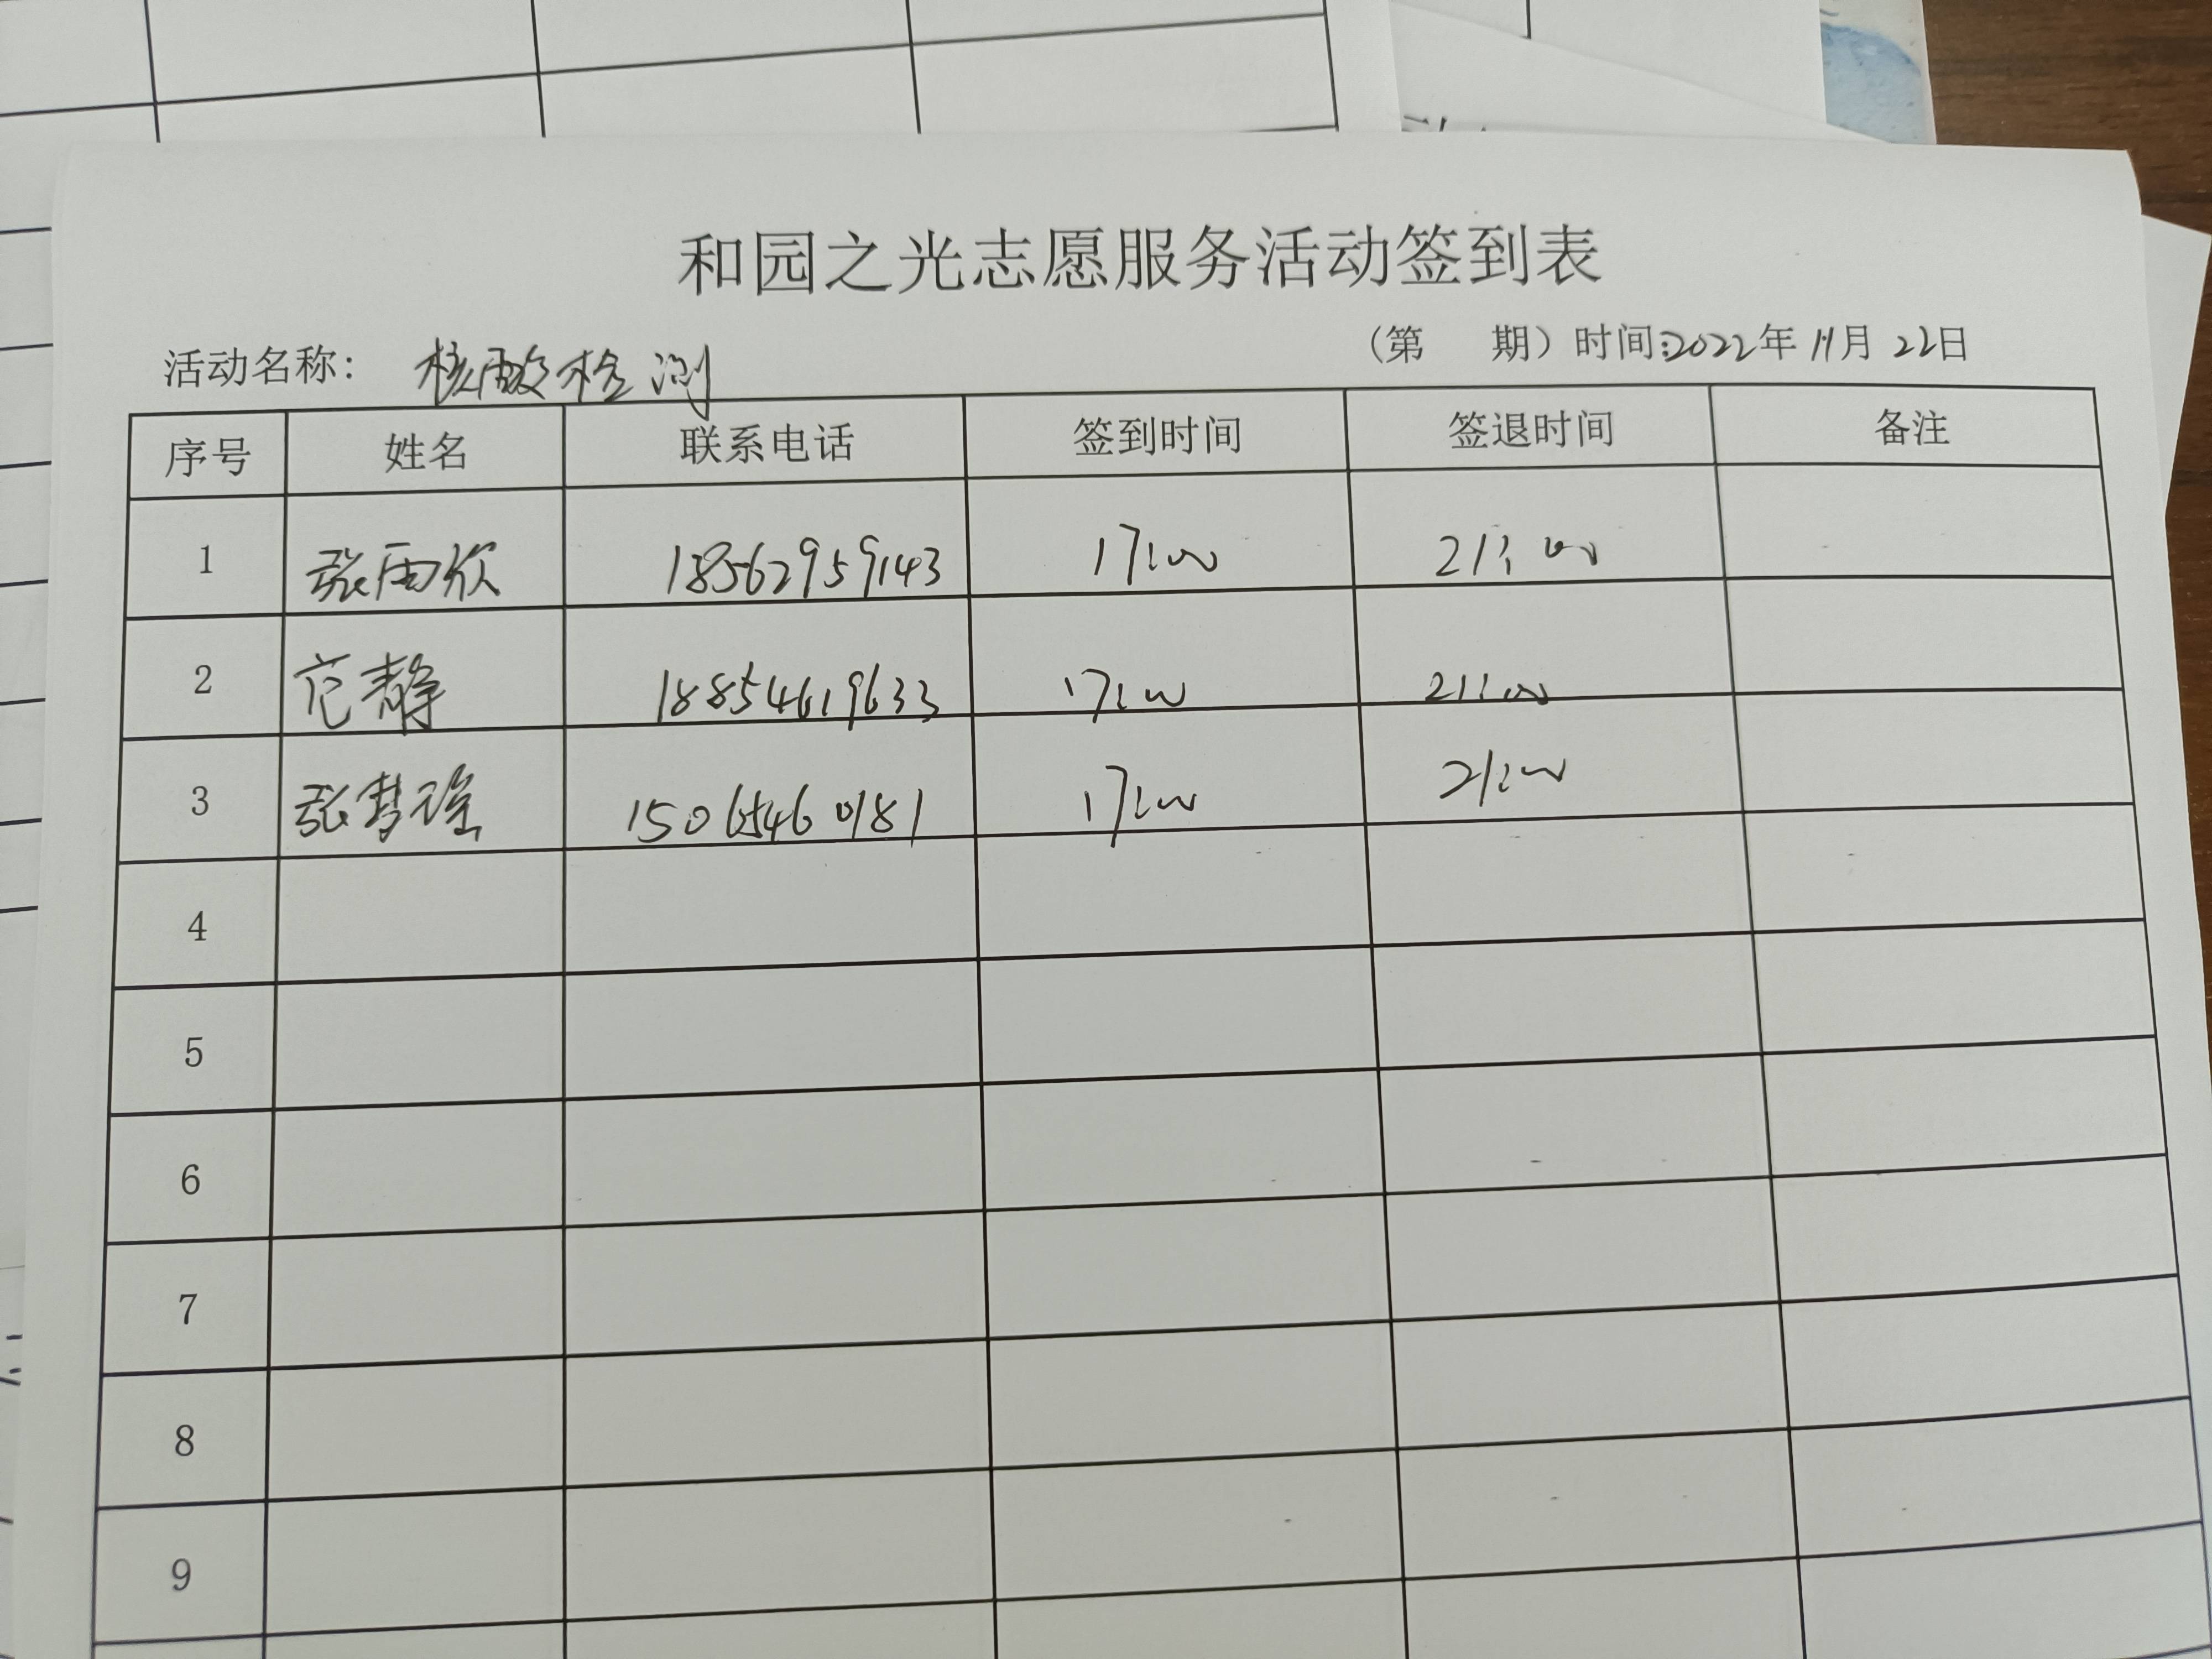 和园之光志愿服务活动签到表
活动名称: 核酸检测 (第 期) 时间:2022年11月22日
序号 姓名 联系电话 签到时间 签退时间 备注
1 张雨欣 18562959143 17:00 21:00
2 范静 18854619633 17:00 21:00
3 张梦瑶 15065460181 17:00 21:00
4
5
6
7
8
9